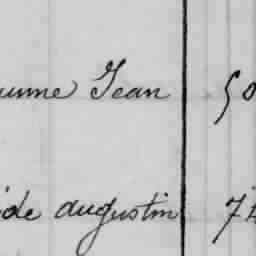 Jean 50
ide augustin 74